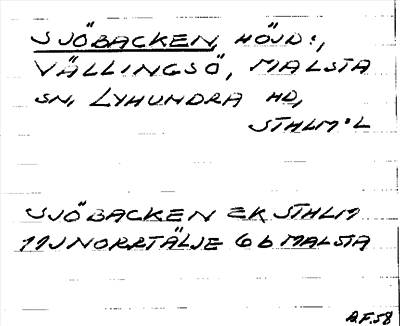 SJÖBACKEN, HÖJD:,
VÄLLINGSÖ, MALSTA
SN, LYHUNDRA HD,
STHLM:L
SJÖBACKEN EK STHLM
11J NORRTÄLJE 6b MALSTA
A.F.58